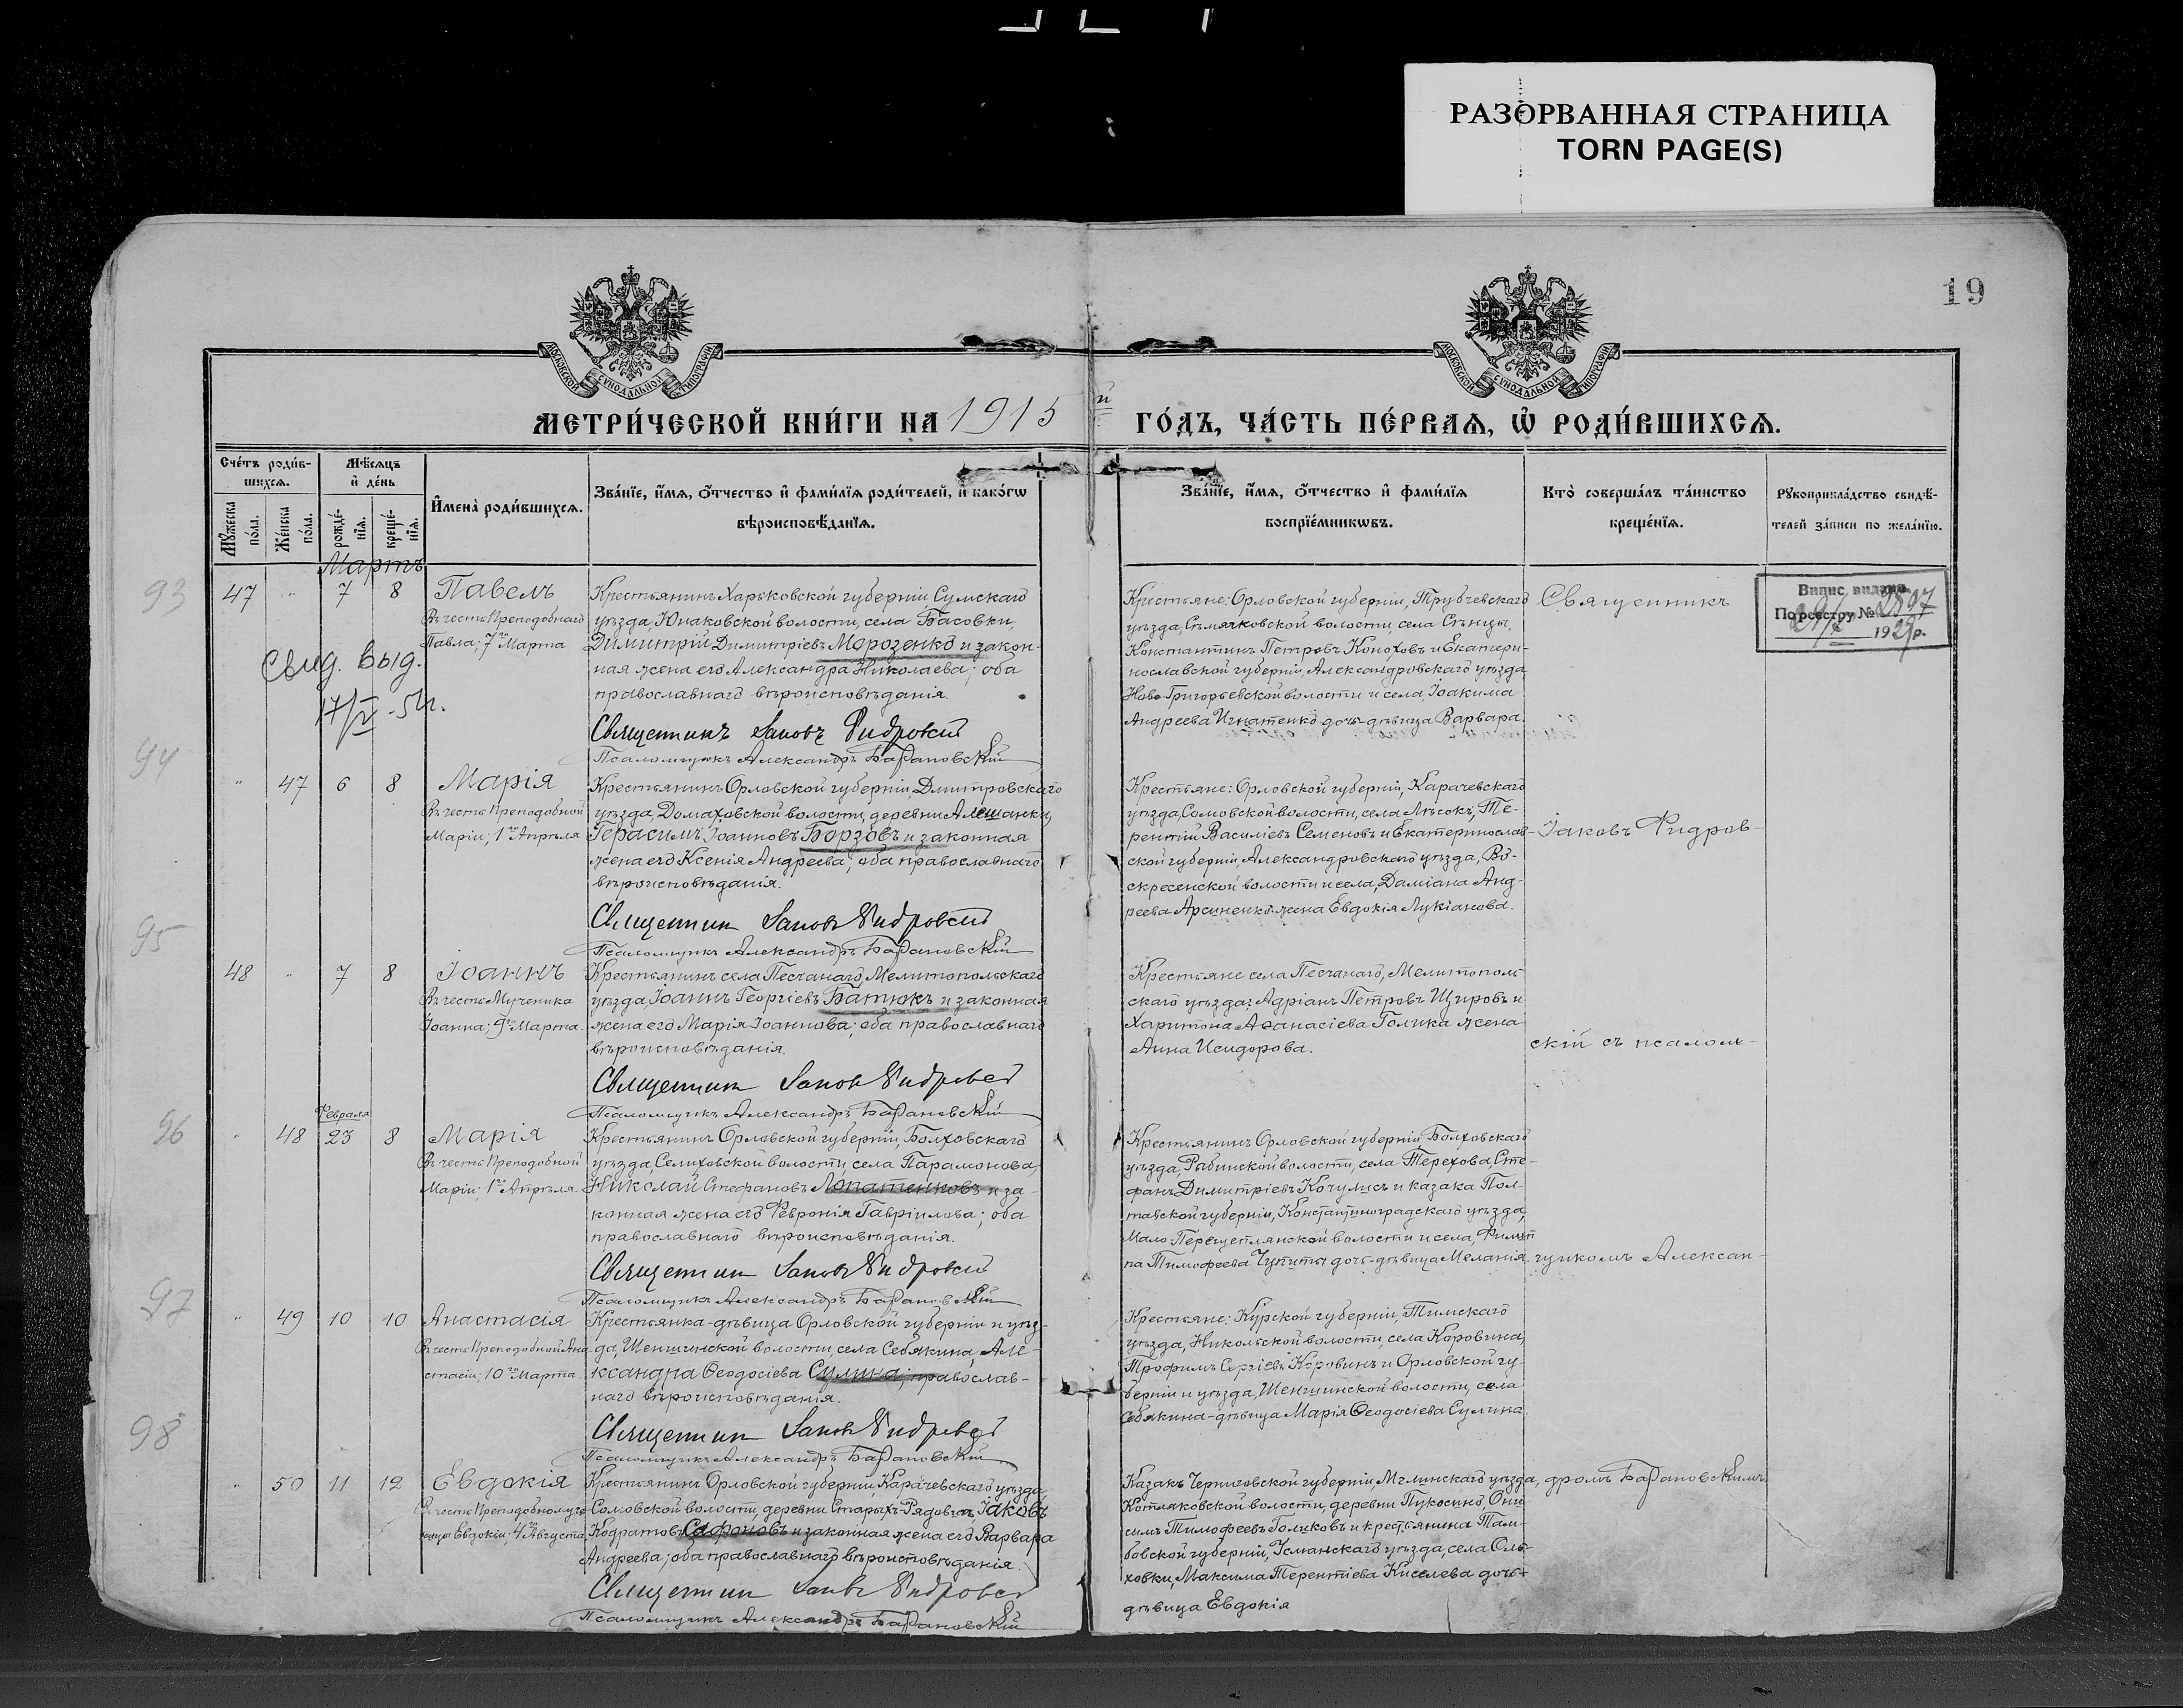 РАЗОРВАННАЯ СТРАНИЦА
TORN PAGE(S)
19
МОСКОВСКОЙ СѴНОДАЛЬНОЙ ТИПОГРАФІИ
МОСКОВСКОЙ СѴНОДАЛЬНОЙ ТИПОГРАФІИ
МЕТРИ́ЧЕСКОЙ КНИ́ГИ НА 1915 й ГО́ДЪ, ЧА́СТЬ ПЕ́РВАѦ, Ѡ҆ РОДИ́ВШИХСѦ.
Сче́тъ роди́в-
шихсѧ.
Мꙋ́жеска по́ла.
Же́нска по́ла.
Мѣ́сѧцъ
и҆ де́нь
рожде́-
нїѧ.
креще́-
нїѧ.
И҆мена̀ роди́вшихсѧ.
Зва́нїе, и҆́мѧ, ѻ҆́тчество и҆ фами́лїѧ роди́телей, и҆ како́гѡ
вѣроисповѣ́данїѧ.
Зва́нїе, и҆́мѧ, ѻ҆́тчество и҆ фами́лїѧ
воспрїе́мникѡвъ.
Кто̀ соверша́лъ та́инство
креще́нїѧ.
Рꙋкоприкла́дство свидѣ́-
телей за́писи по жела́нїю.
Мартъ
93
47 " 7 8
Павелъ
Въ честь Преподобнаго
Павла; 7го Марта
Свид. выд.
17/V-54г.
Крестьянинъ Харьковской губерніи Сумскаго
уѣзда, Юнаковской волости, села Басовки,
Димитрій Димитріевъ Морозенко и закон-
ная жена его Александра Николаева; оба
православнаго вѣроисповѣданія.
Священникъ Іаковъ Фидровскій
Псаломщикъ Александръ Барановскій
Крестьяне: Орловской губерніи, Трубчевскаго
уѣзда, Сѣмячковской волости, села Сѣнцы,
Константинъ Петровъ Коноховъ и Екатери-
нославской губерніи, Александровскаго уѣзда
Ново-Григорьевской волости и села, Іоакима
Андреева Игнатенко дочь-дѣвица Варвара.
Священникъ
Випис видано
По реєстру № 2897
1929 р.
94
" 47 6 8
Марія
Въ честь Преподобной
Маріи; 1го Апрѣля
Крестьянинъ Орловской губерніи, Дмитровскаго
уѣзда, Домаховской волости, деревни Алешанки,
Герасимъ Іоанновъ Борзовъ и законная
жена его Ксенія Андреева; оба православнаго
вѣроисповѣданія.
Священникъ Іаковъ Фидровскій
Псаломщикъ Александръ Барановскій
Крестьяне: Орловской губерніи, Карачевскаго
уѣзда, Сомовской волости, села Лѣсокъ, Те-
рентій Василіевъ Семеновъ и Екатеринослав-
ской губерніи, Александровскаго уѣзда, Во-
скресенской волости и села, Даміана Анд-
реева Арсиненко жена Евдокія Лукіанова.
Іаковъ Фидров-
95
48 " 7 8
Іоаннъ
Въ честь Мученика
Іоанна; 9го Марта.
Крестьянинъ села Песчанаго, Мелитопольскаго
уѣзда, Іоаннъ Георгіевъ Батюкъ и законная
жена его Марія Іоаннова; оба православнаго
вѣроисповѣданія.
Священникъ Іаковъ Фидровскій
Псаломщикъ Александръ Барановскій
Крестьяне села Песчанаго, Мелитополь-
скаго уѣзда: Адріанъ Петровъ Щировъ и
Харитона Аѳанасіева Голика жена
Анна Исидорова.
скій съ псалом-
96
Февраля
" 48 23 8
Марія
Въ честь Преподобной
Маріи; 1го Апрѣля.
Крестьянинъ Орловской губерніи, Болховскаго
уѣзда, Селиховской волости, села Парамонова,
Николай Стефановъ Лопатенковъ и за-
конная жена его Февронія Гавріилова; оба
православнаго вѣроисповѣданія.
Священникъ Іаковъ Фидровскій
Псаломщикъ Александръ Барановскій
Крестьянинъ Орловской губерніи, Болховскаго
уѣзда, Рыбинской волости, села Терехова, Сте-
фанъ Димитріевъ Кочулисъ и казака Пол-
тавской губерніи, Константиноградскаго уѣзда,
Мало-Перещепянской волости и села, Филип-
па Тимофеева Чупиты дочь-дѣвица Меланія.
щикомъ Алексан-
97
" 49 10 10
Анастасія
Въ честь Преподобной Ана-
стасіи; 10го Марта.
Крестьянка-дѣвица Орловской губерніи и уѣз-
да, Шеншинской волости, села Себякина, Але-
ксандра Ѳеодосіева Сулина, православ-
наго вѣроисповѣданія.
Священникъ Іаковъ Фидровскій
Псаломщикъ Александръ Барановскій
Крестьяне: Курской губерніи, Тимскаго
уѣзда, Никольской волости, села Каровина,
Трофимъ Сергіевъ Коровинъ и Орловской гу-
берніи и уѣзда, Шеншинской волости, села
Себякина-дѣвица Марія Ѳеодосіева Сулина.
98
" 50 11 12
Евдокія
Въ честь Преподобномуче-
ницы Евдокіи; 4го Августа.
Крестьянинъ Орловской губерніи, Карачевскаго уѣзда,
Сомовской волости, деревни Старыхъ-Рядовичъ, Іаковъ
Кодратовъ Сафоновъ и законная жена его Варвара
Андреева; оба православнаго вѣроисповѣданія.
Священникъ Іаковъ Фидровскій
Псаломщикъ Александръ Барановскій
Казакъ Черниговской губерніи, Мглинскаго уѣзда,
Котляковской волости, деревни Пукосино, Они-
симъ Тимофеевъ Голиковъ и крестьянина Там-
бовской губерніи, Усманскаго уѣзда, села Оль-
ховки, Максима Терентіева Киселева дочь-
дѣвица Евдокія
дромъ Барановскимъ.